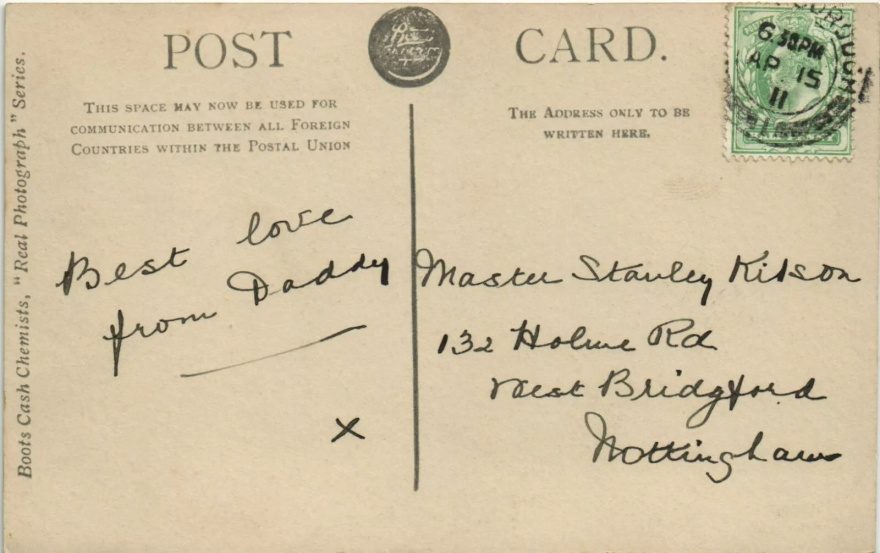 POST CARD.
THIS SPACE MAY NOW BE USED FOR
COMMUNICATION BETWEEN ALL FOREIGN
COUNTRIES WITHIN THE POSTAL UNION
THE ADDRESS ONLY TO BE
WRITTEN HERE.
6.30PM
AP 15
11
Boots Cash Chemists, "Real Photograph" Series.
Best love
from Daddy
x
Master Stanley Kitson
132 Holme Rd
West Bridgford
Nottingham